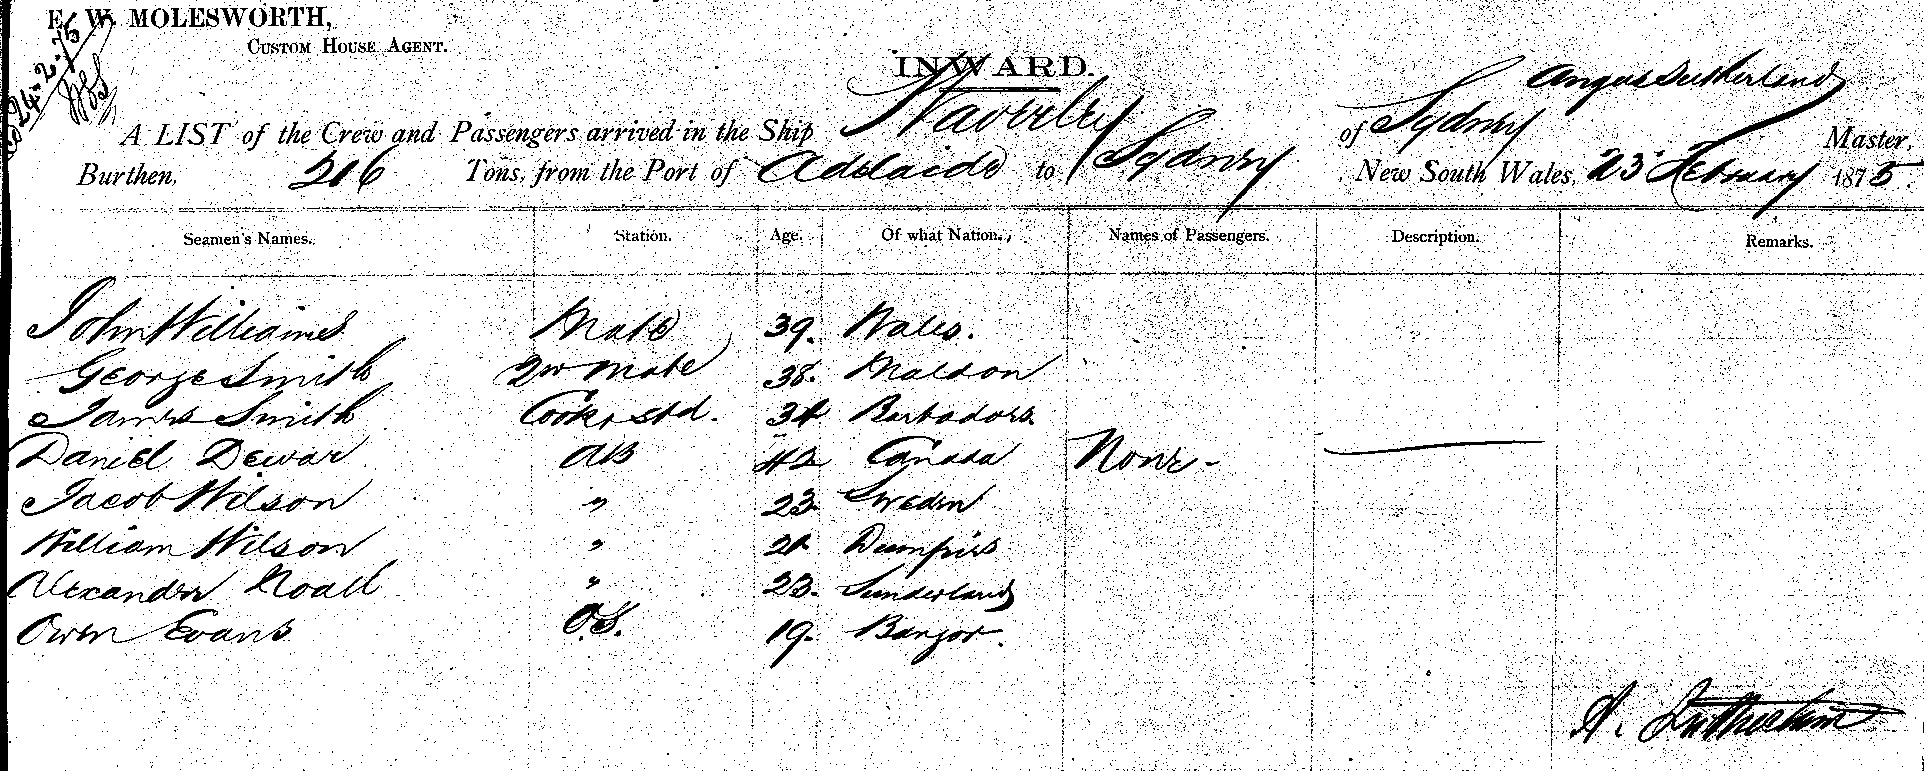 E. W. MOLESWORTH,
CUSTOM HOUSE AGENT.
24.2.75
INWARD.
Angus Sutherland
A LIST of the Crew and Passengers arrived in the Ship Waverley of Sydney Master,
Burthen, 216 Tons, from the Port of Adelaide to Sydney New South Wales, 23 February 1875.
Seamen's Names. Station. Age. Of what Nation. Names of Passengers. Description. Remarks.
John Williams Mate 39. Wales.
George Smith 2nd Mate 38. Maldon
James Smith Cook & Std. 34 Barbadoes
Daniel Dewar AB 42 Canada None -
Jacob Wilson " 23. Sweden
William Wilson " 21. Dumfries
Alexander " 23. Sunderland
Owen Evans O.S. 19. Bangor.
A. Sutherland